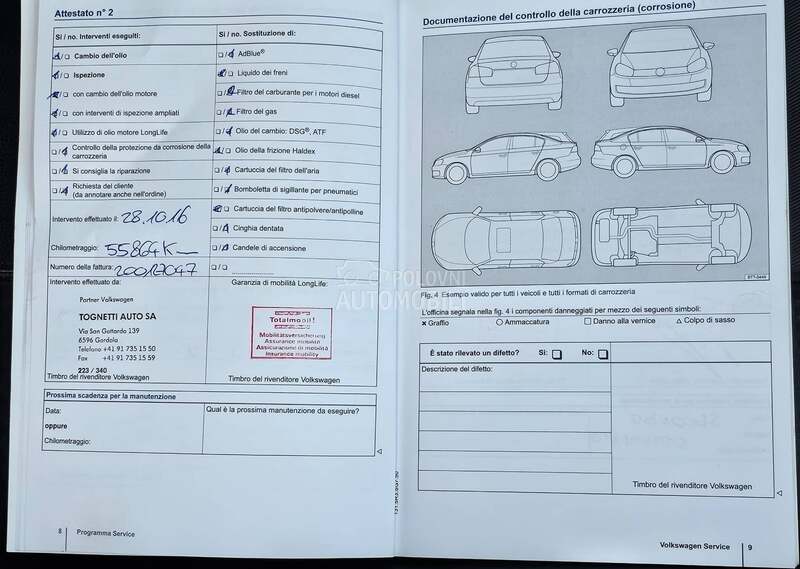 Attestato n° 2
Si / no. Interventi eseguiti:
Cambio dell'olio
Ispezione
con cambio dell'olio motore
con interventi di ispezione ampliati
Utilizzo di olio motore LongLife
Controllo della protezione da corrosione della
carrozzeria
Si consiglia la riparazione
Richiesta del cliente
(da annotare anche nell'ordine)
Intervento effettuato il: 28.10.16
Chilometraggio: 55864K
Numero della fattura:
Intervento effettuato da:
Partner Volkswagen
TOGNETTI AUTO SA
Via San Gottardo 139
6596 Gordola
Telefono +41 91 735 15 50
Fax +41 91 735 15 59
223 / 340
Timbro del rivenditore Volkswagen
Si / no. Sostituzione di:
AdBlue®
Liquido dei freni
Filtro del carburante per i motori diesel
Filtro del gas
Olio del cambio: DSG®, ATF
Olio della frizione Haldex
Cartuccia del filtro dell'aria
Bomboletta di sigillante per pneumatici
Cartuccia del filtro antipolvere/antipolline
Cinghia dentata
Candele di accensione
Garanzia di mobilità LongLife:
Totalmobil!
Mobilitätsversicherung
Assurance mobilité
Assicurazione di mobilità
Insurance mobility
Timbro del rivenditore Volkswagen
Prossima scadenza per la manutenzione
Data:
oppure
Chilometraggio:
Qual è la prossima manutenzione da eseguire?
8 Programma Service
POLOVNI
AUTOMOBILI
Documentazione del controllo della carrozzeria (corrosione)
Fig. 4 Esempio valido per tutti i veicoli e tutti i formati di carrozzeria
L'officina segnala nella fig. 4 i componenti danneggiati per mezzo dei seguenti simboli:
× Graffio ○ Ammaccatura □ Danno alla vernice △ Colpo di sasso
È stato rilevato un difetto? Sì: No:
Descrizione del difetto:
Timbro del rivenditore Volkswagen
Volkswagen Service 9